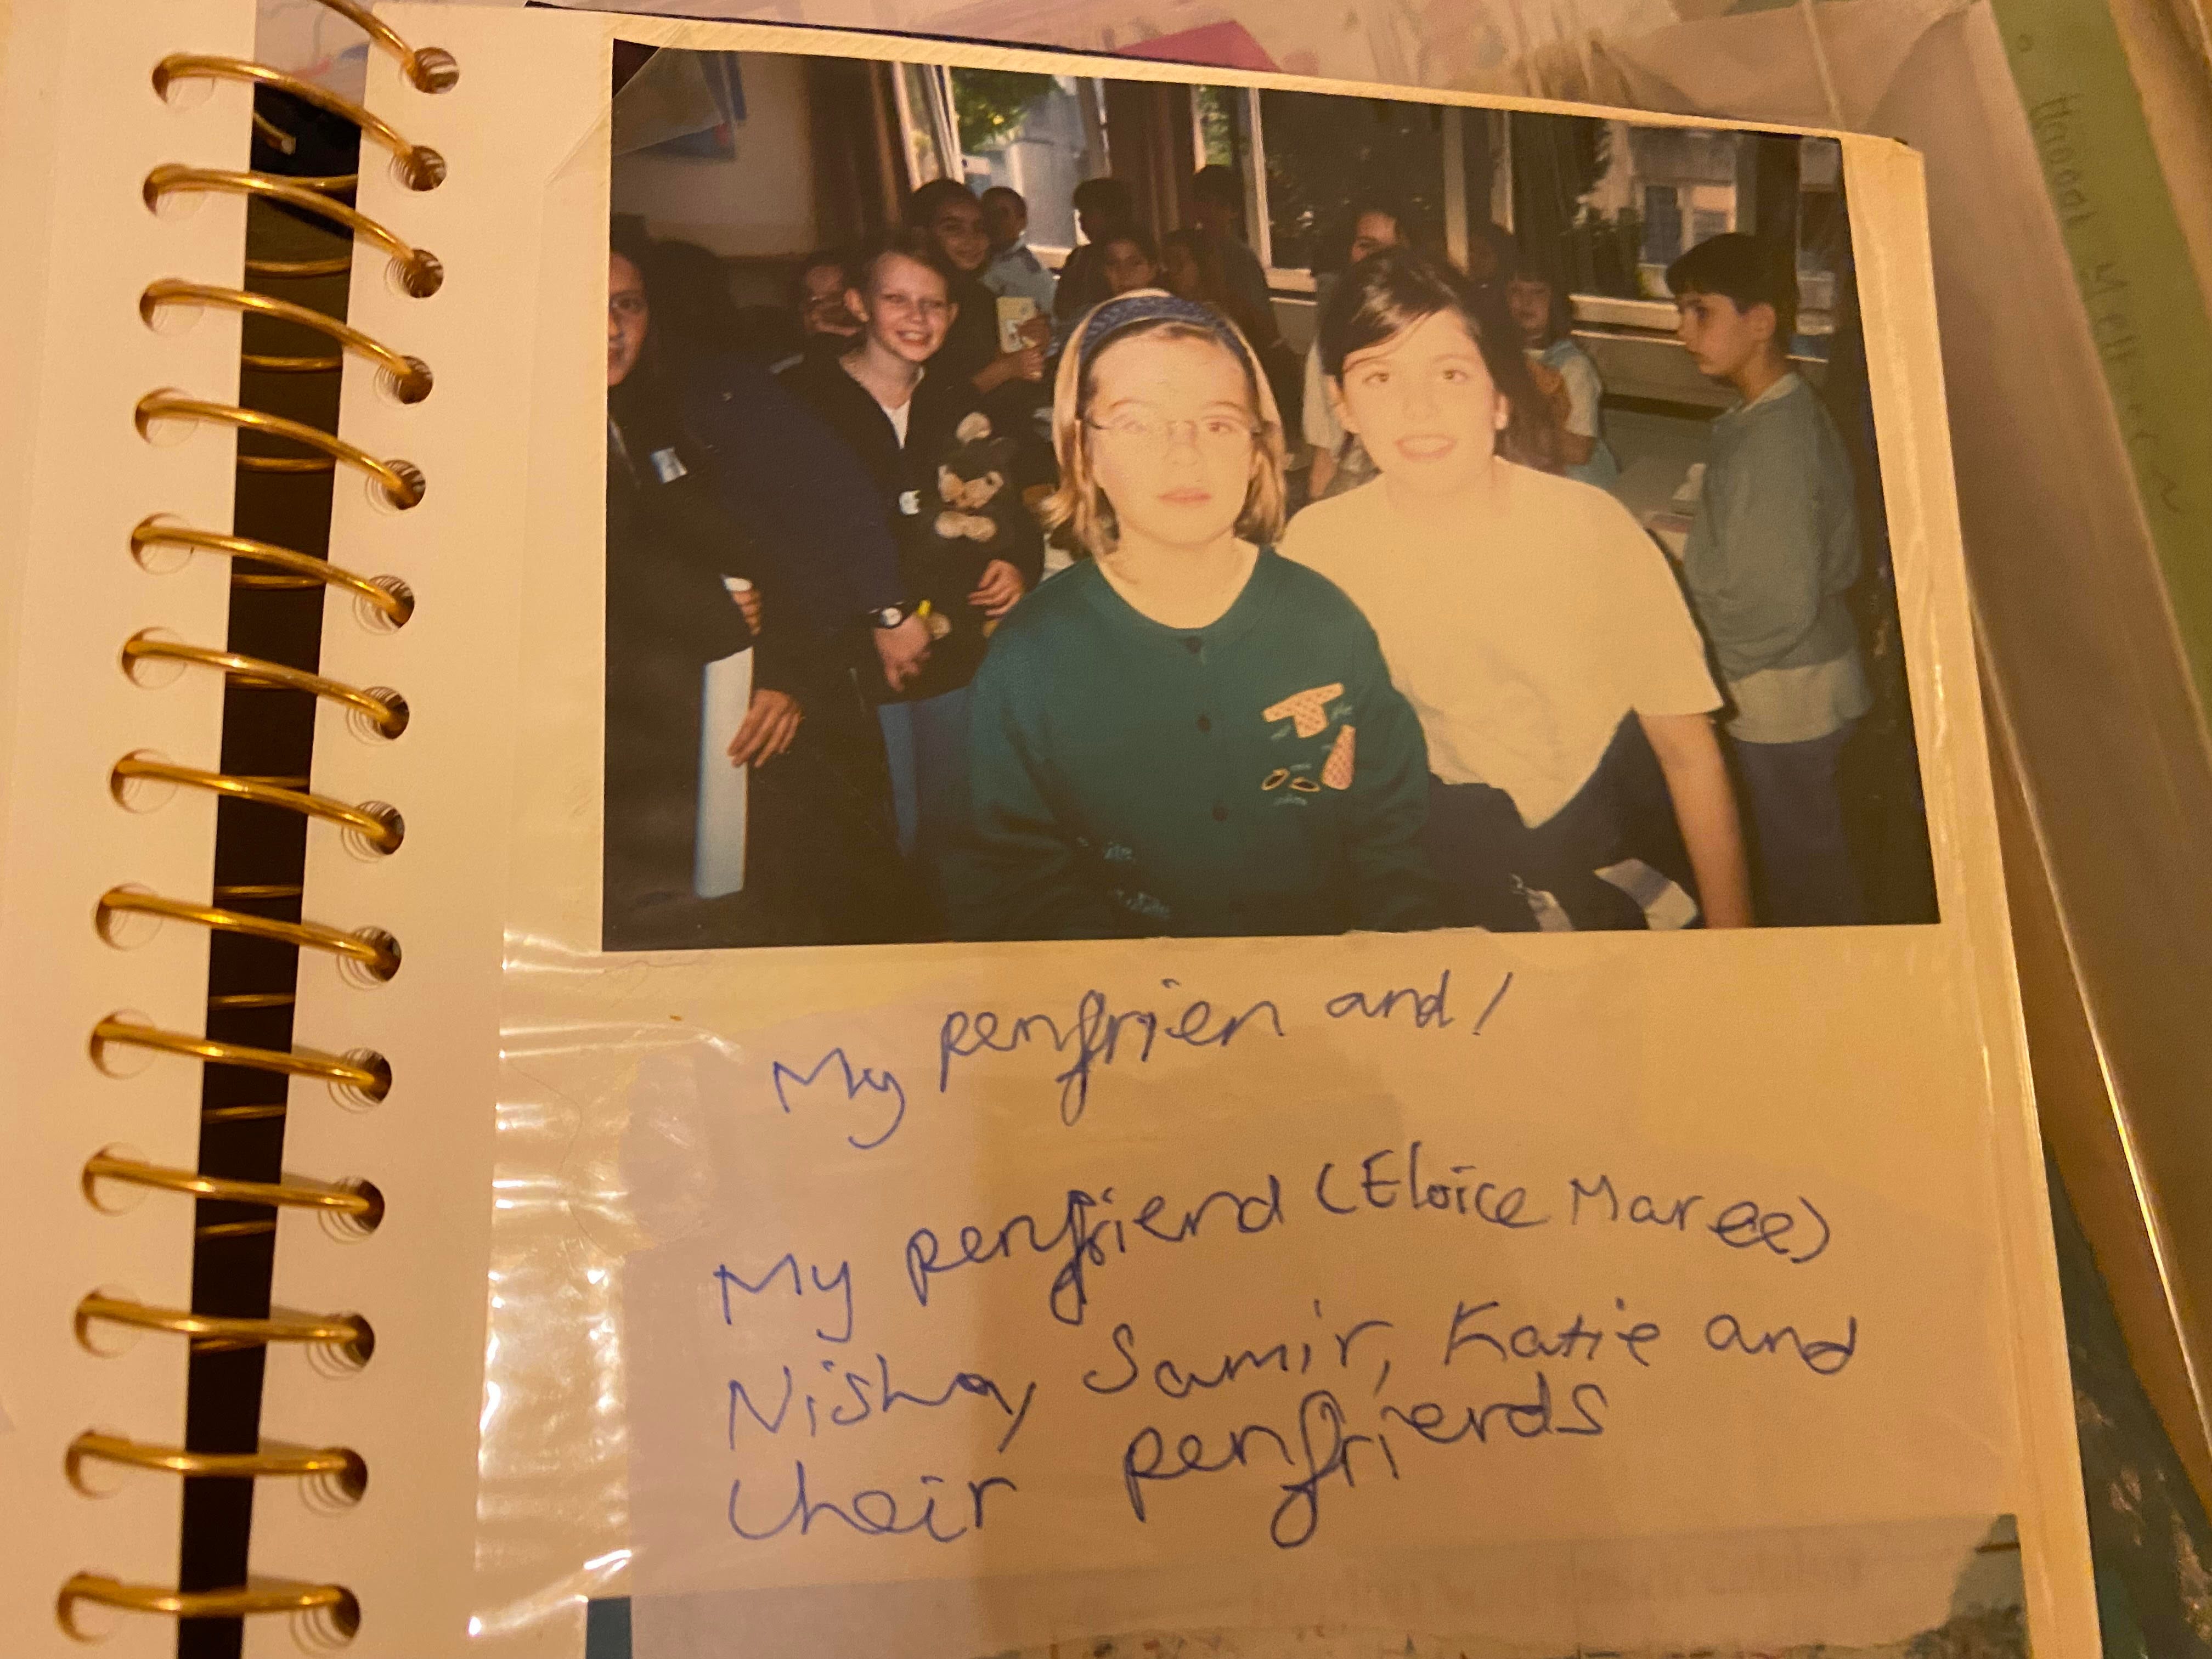 My penfrien and I
My penfriend (Eloice Maree)
Nisha, Samir, Katie and
their penfriends